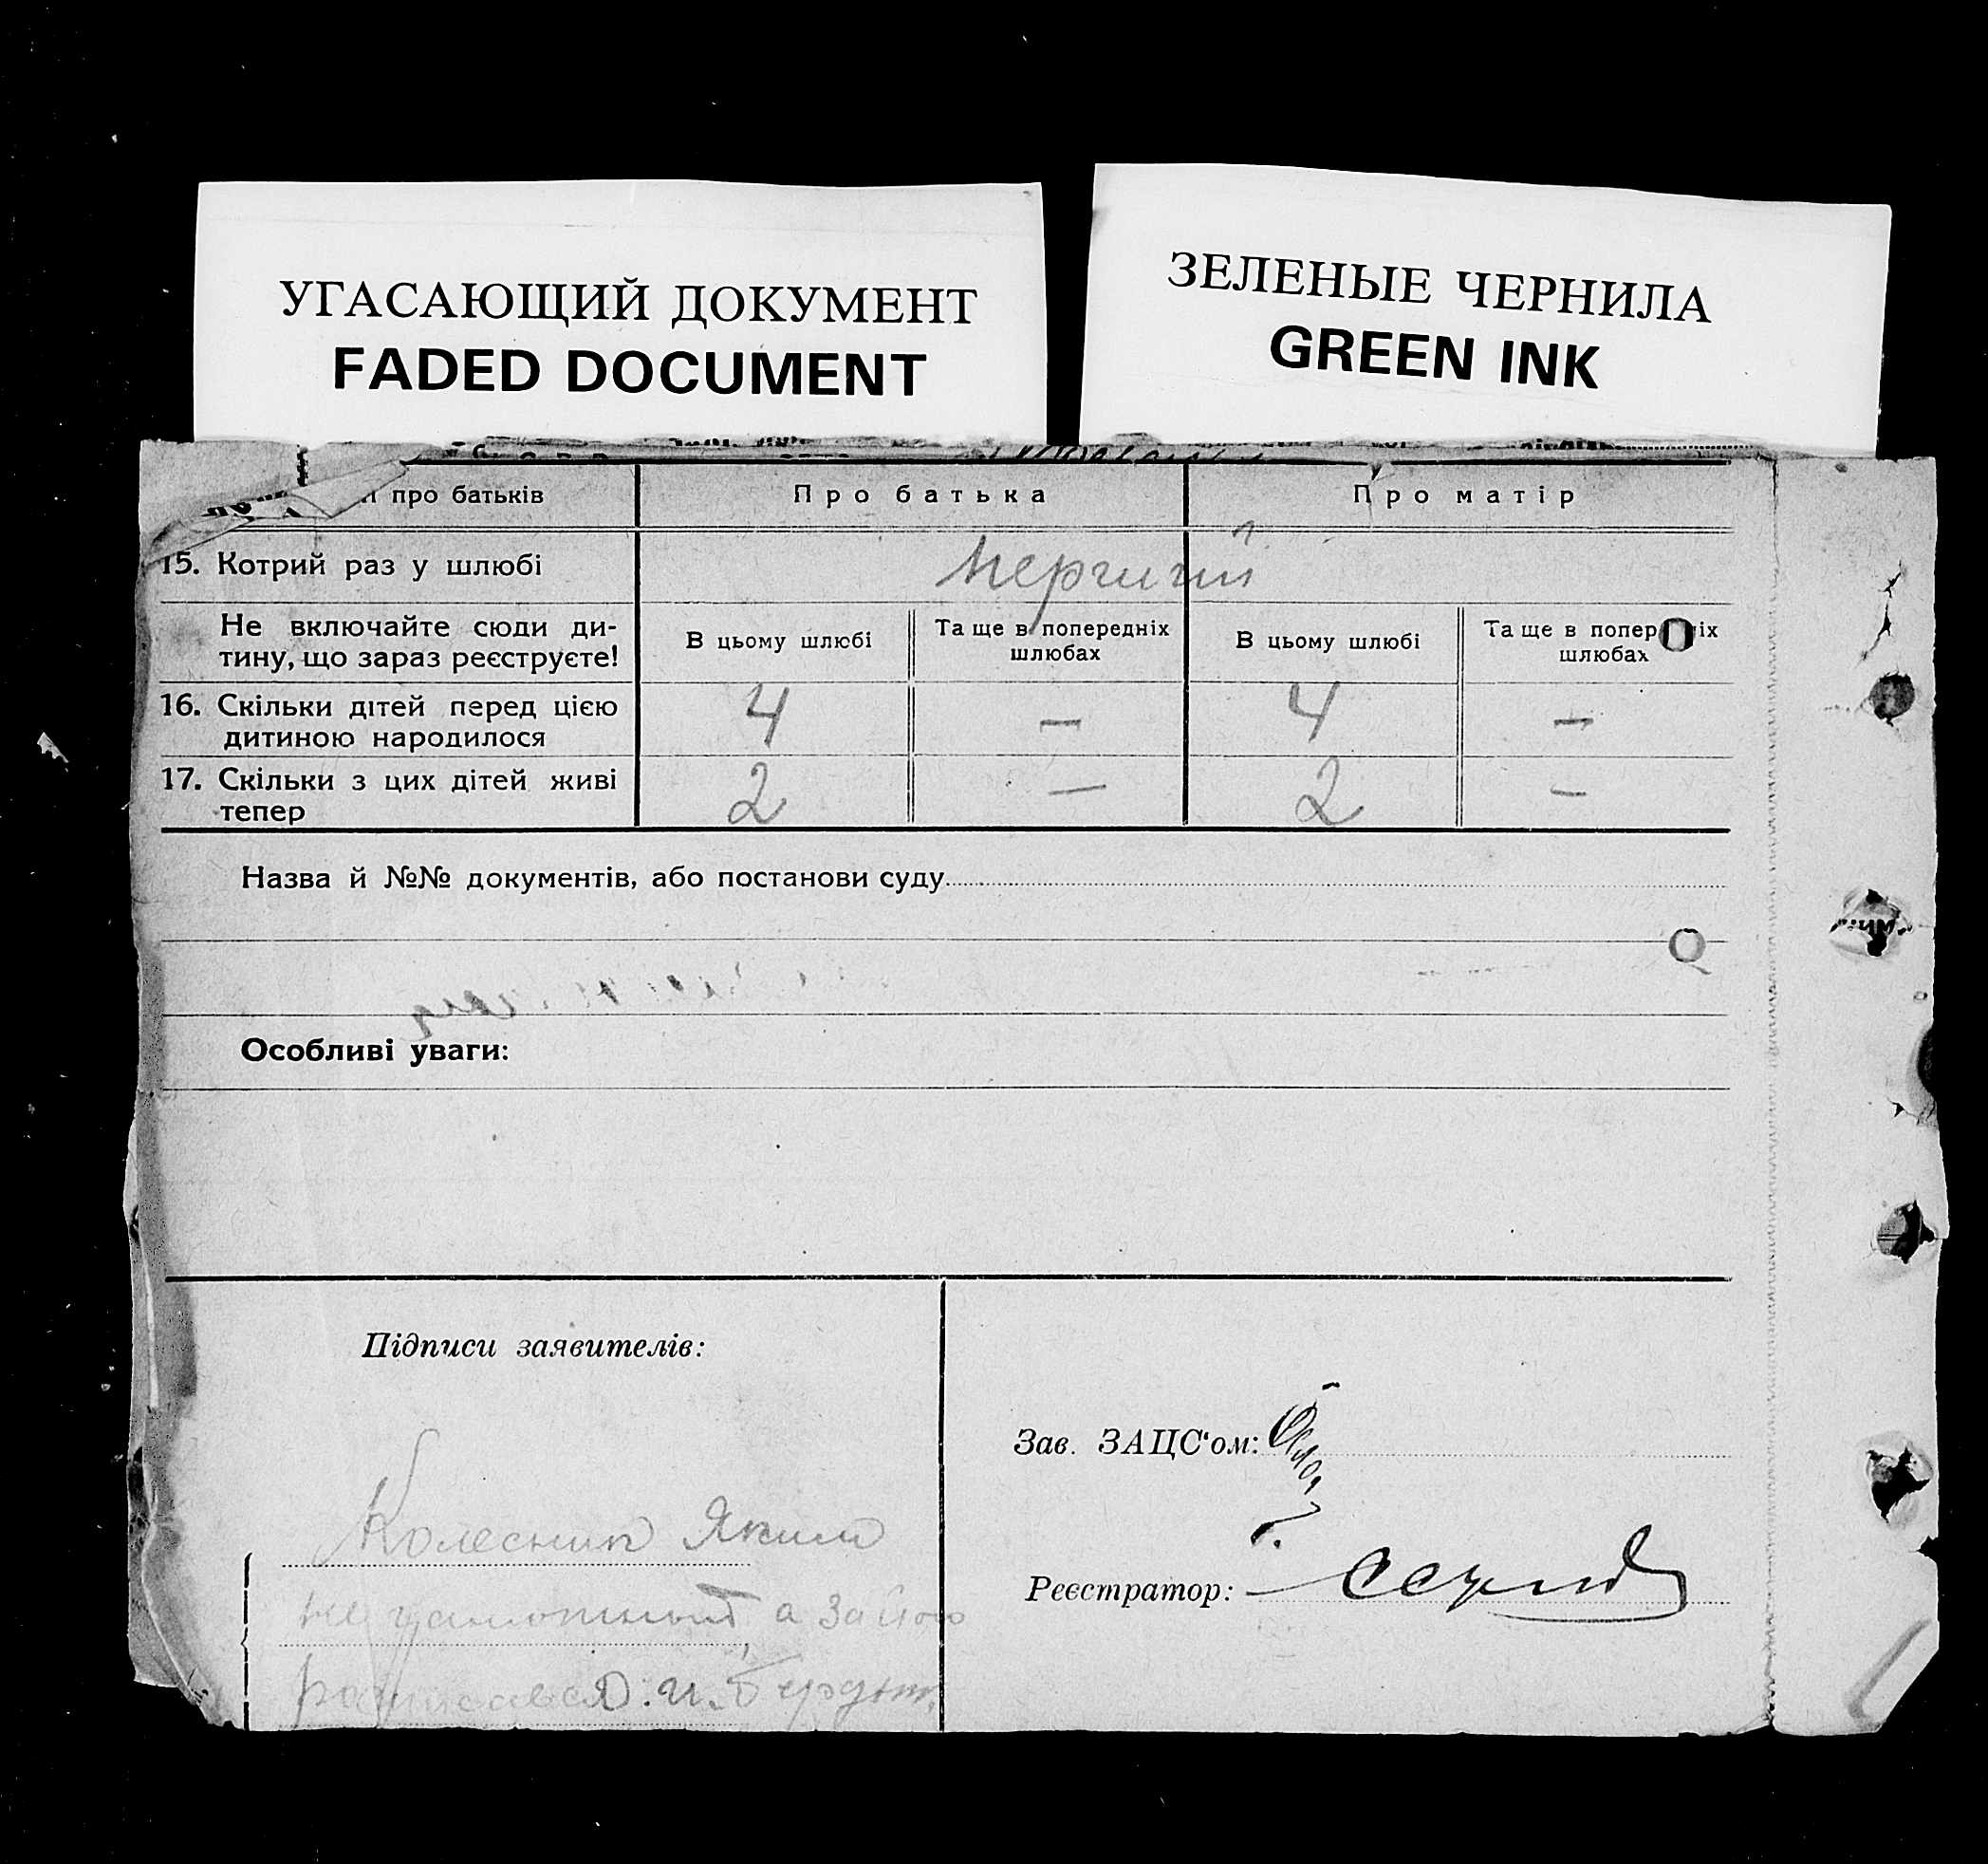 УГАСАЮЩИЙ ДОКУМЕНТ
FADED DOCUMENT
ЗЕЛЕНЫЕ ЧЕРНИЛА
GREEN INK
про батьків
Про батька
Про матір
15. Котрий раз у шлюбі
перший
Не включайте сюди ди-
тину, що зараз реєструєте!
В цьому шлюбі
Та ще в попередніх
шлюбах
В цьому шлюбі
Та ще в попередніх
шлюбах
16. Скільки дітей перед цією
дитиною народилося
4 — 4 —
17. Скільки з цих дітей живі
тепер
2 — 2 —
Назва й №№ документів, або постанови суду
Особливі уваги:
Підписи заявителів:
Колесник Яким
не грамотный, а за його
росписався
Зав. ЗАЦС'ом:
Реєстратор: